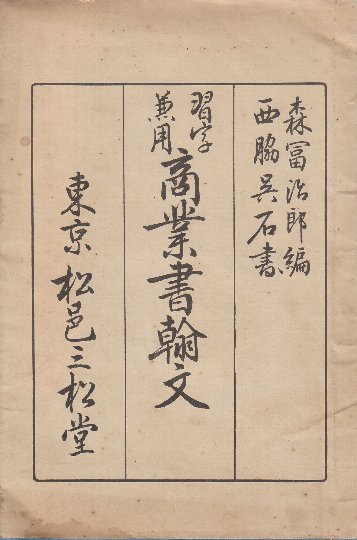 森冨治郎編
西脇呉石書
習字
兼用
商業書翰文
東京 松邑三松堂